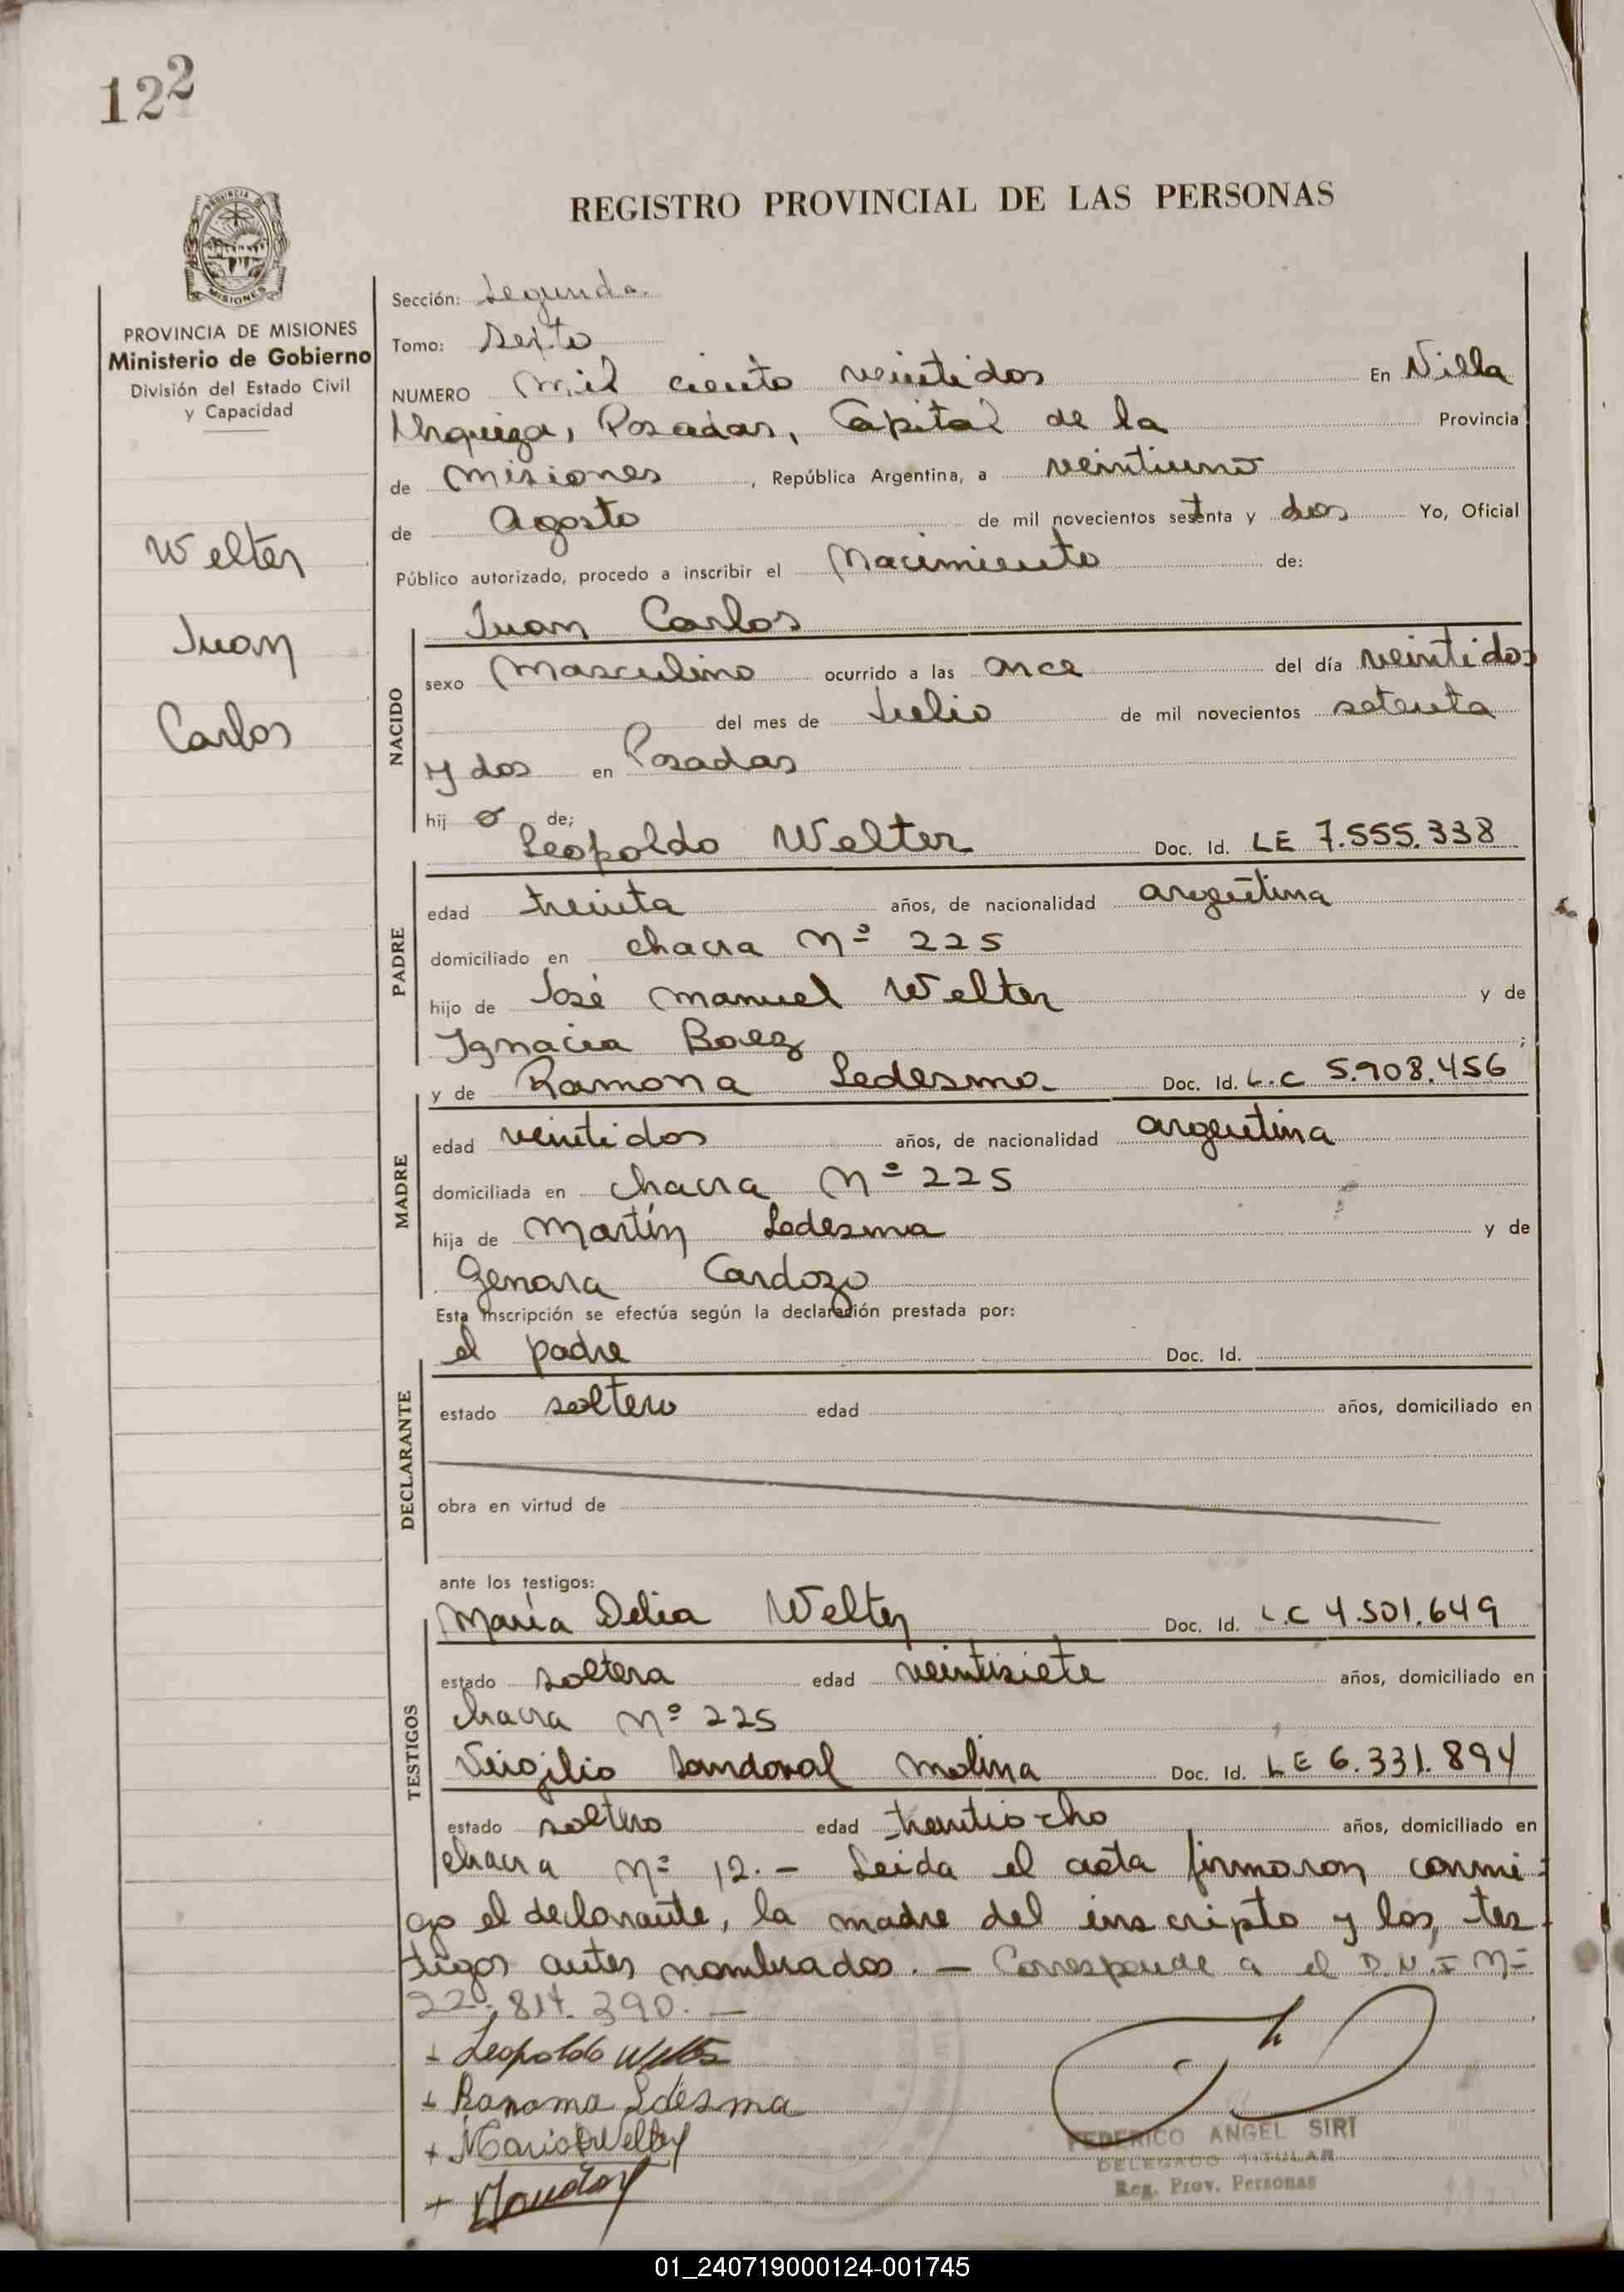 122
REGISTRO PROVINCIAL DE LAS PERSONAS
PROVINCIA DE MISIONES
Ministerio de Gobierno
División del Estado Civil
y Capacidad
Welter
Juan
Carlos
Sección: Segunda
Tomo: Sexto
NUMERO mil ciento veintidos En Villa
Urquiza, Posadas, Capital de la Provincia
de misiones, República Argentina, a veintiuno
de Agosto de mil novecientos setenta y dos Yo, Oficial
Público autorizado, procedo a inscribir el Nacimiento de:
NACIDO
Juan Carlos
sexo masculino ocurrido a las once del día veintidos
del mes de Julio de mil novecientos setenta
y dos en Posadas
hijo de;
PADRE
Leopoldo Welter Doc. Id. LE 7.555.338
edad treinta años, de nacionalidad argentina
domiciliado en chacra Nº 225
hijo de José Manuel Welter y de
Ignacia Baez;
MADRE
y de Ramona Ledesma Doc. Id. L.C 5.908.456
edad veintidos años, de nacionalidad argentina
domiciliada en chacra Nº 225
hija de Martín Ledesma y de
Genara Cardozo
Esta inscripción se efectúa según la declaración prestada por:
DECLARANTE
el padre Doc. Id.
estado soltero edad años, domiciliado en
obra en virtud de
ante los testigos:
TESTIGOS
María Delia Welter Doc. Id. L.C 4.501.649
estado soltera edad veintisiete años, domiciliado en
chacra Nº 225
Virgilio Sandoval Molina Doc. Id. LE 6.331.894
estado soltero edad treintiocho años, domiciliado en
chacra Nº 12.- Leida el acta firmaron conmi-
go el declarante, la madre del inscripto y los tes-
tigos antes nombrados.- Corresponde a el D.N.I Nº
22.817.390.-
+ Leopoldo Welter
+ Ramona Ledesma
+ Maria D Welter
FEDERICO ANGEL SIRI
DELEGADO TITULAR
Reg. Prov. Personas
01_240719000124-001745